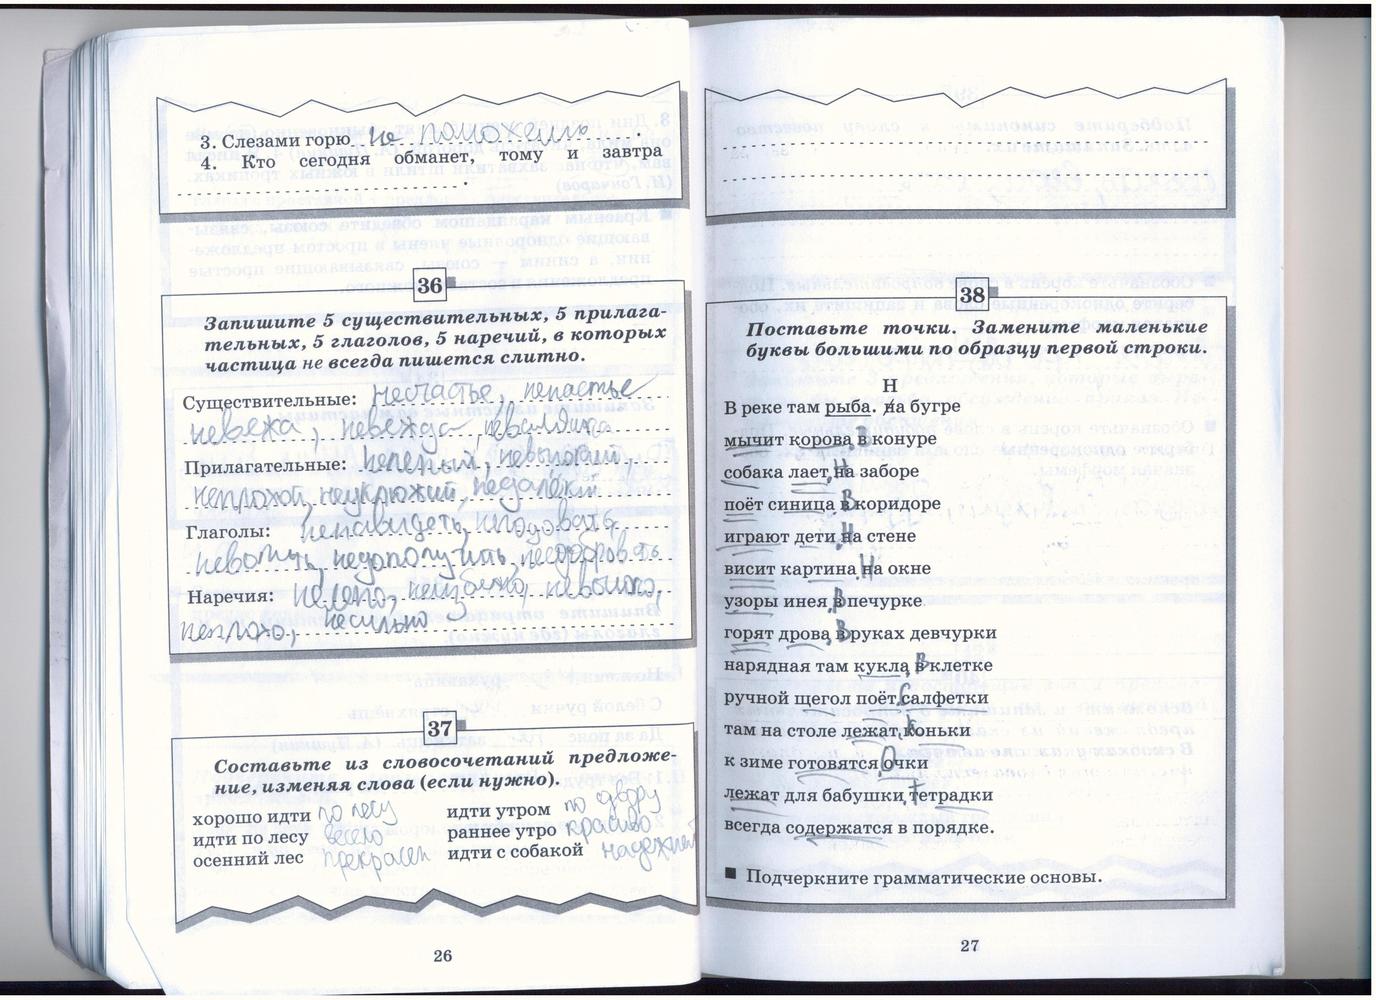 3. Слезами горю не поможешь.
4. Кто сегодня обманет, тому и завтра
.
36
Запишите 5 существительных, 5 прилага-
тельных, 5 глаголов, 5 наречий, в которых
частица не всегда пишется слитно.
Существительные: несчастье, ненастье
невежа, невежда, невалидка
Прилагательные: нелепый, невысокий,
неплохой, неуклюжий, недалёкий
Глаголы: ненавидеть, негодовать,
неволить, недополучить, нездоровить
Наречия: нелепо, неизбежно, невысоко,
неплохо, несильно
37
Составьте из словосочетаний предложе-
ние, изменяя слова (если нужно).
хорошо идти по лесу
идти по лесу весело
осенний лес прекрасен
идти утром по двору
раннее утро красиво
идти с собакой
26
38
Поставьте точки. Замените маленькие
буквы большими по образцу первой строки.
Н
В реке там рыба. на бугре
мычит корова. В конуре
собака лает. На заборе
поёт синица. В коридоре
играют дети. На стене
висит картина. На окне
узоры инея. В печурке
горят дрова. В руках девчурки
нарядная там кукла. В клетке
ручной щегол поёт. Салфетки
там на столе лежат. Коньки
к зиме готовятся. Очки
лежат для бабушки. Тетрадки
всегда содержатся в порядке.
■ Подчеркните грамматические основы.
27